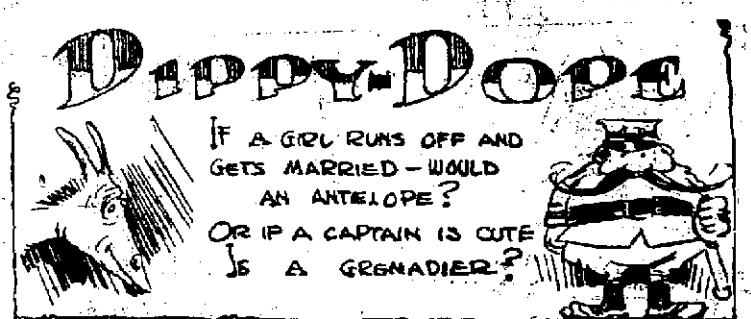 DIPPY-DOPE
IF A GIRL RUNS OFF AND
GETS MARRIED - WOULD
AN ANTELOPE?
OR IF A CAPTAIN IS CUTE
IS A GRENADIER?